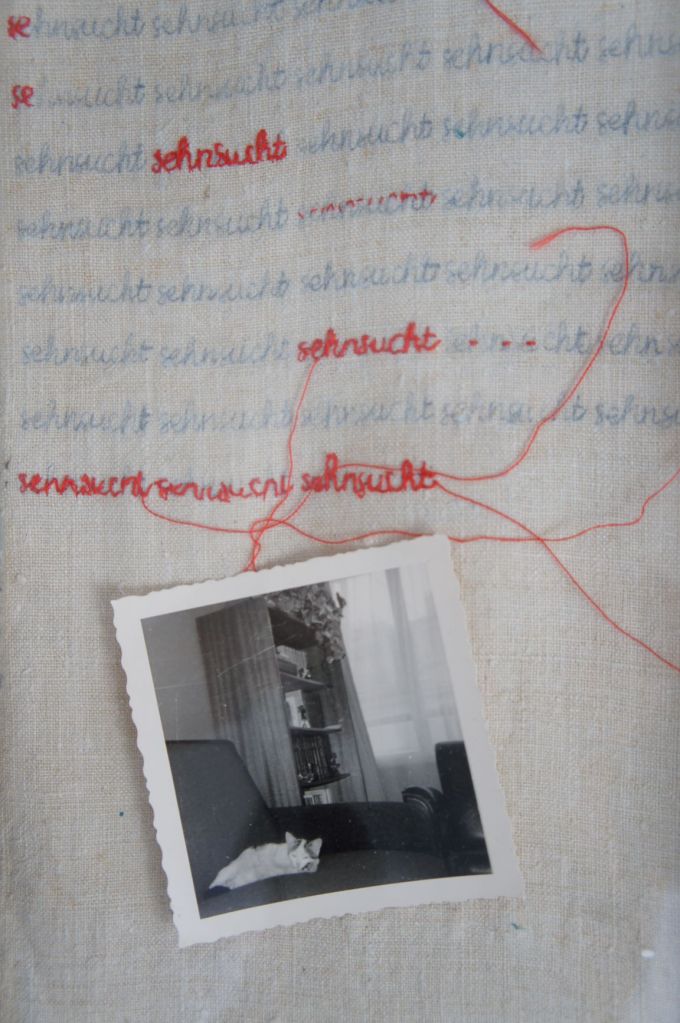 sehnsucht sehnsucht sehnsucht
sehnsucht sehnsucht sehnsucht sehnsucht sehns
sehnsucht sehnsucht sehnsucht sehnsucht sehns
sehnsucht sehnsucht sehnsucht sehnsucht sehns
sehnsucht sehnsucht sehnsucht sehnsucht sehns
sehnsucht sehnsucht sehnsucht sehnsucht sehn
sehnsucht sehnsucht sehnsucht sehnsucht sehnsu
sehnsucht sehnsucht sehnsucht